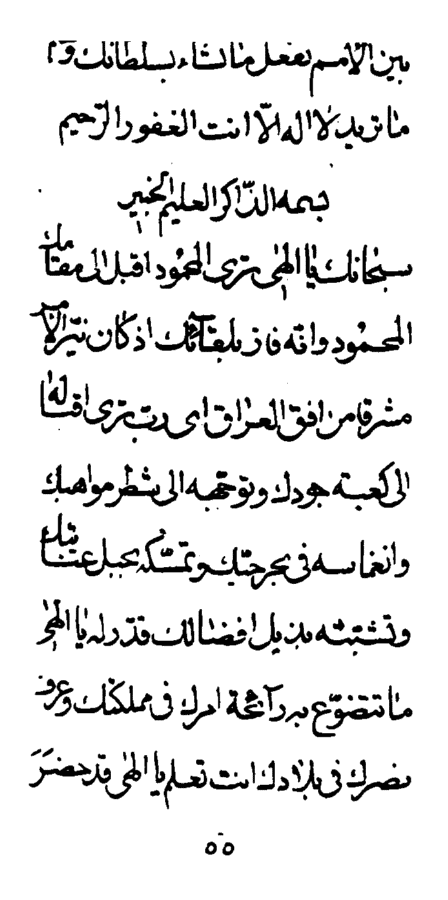 بین الامم تفعل ما تشاء بسلطانک و
ما ترید لا اله الّا انت الغفور الرّحیم
بسمه الذّاکر العلیم الخبیر
سبحانک یا الهی تری المحمود اقبل الی مقامک
المحمود و انّه فاز بلقآئک اذ کان نیّر الامر
مشرقا من افق العراق ای ربّ تری اقباله
الی کعبة جودک و توجّهه الی شطر مواهبک
و انغماسه فی بحر حبّک و تمسّکه بحبل عنایتک
و تشبّثه بذیل افضالک قدّر له یا الهی
ما تتضوّع به رآئحة امرک فی مملکتک و عرف
نصرک فی بلادک انت تعلم یا الهی قد حضَرَ
۵۵